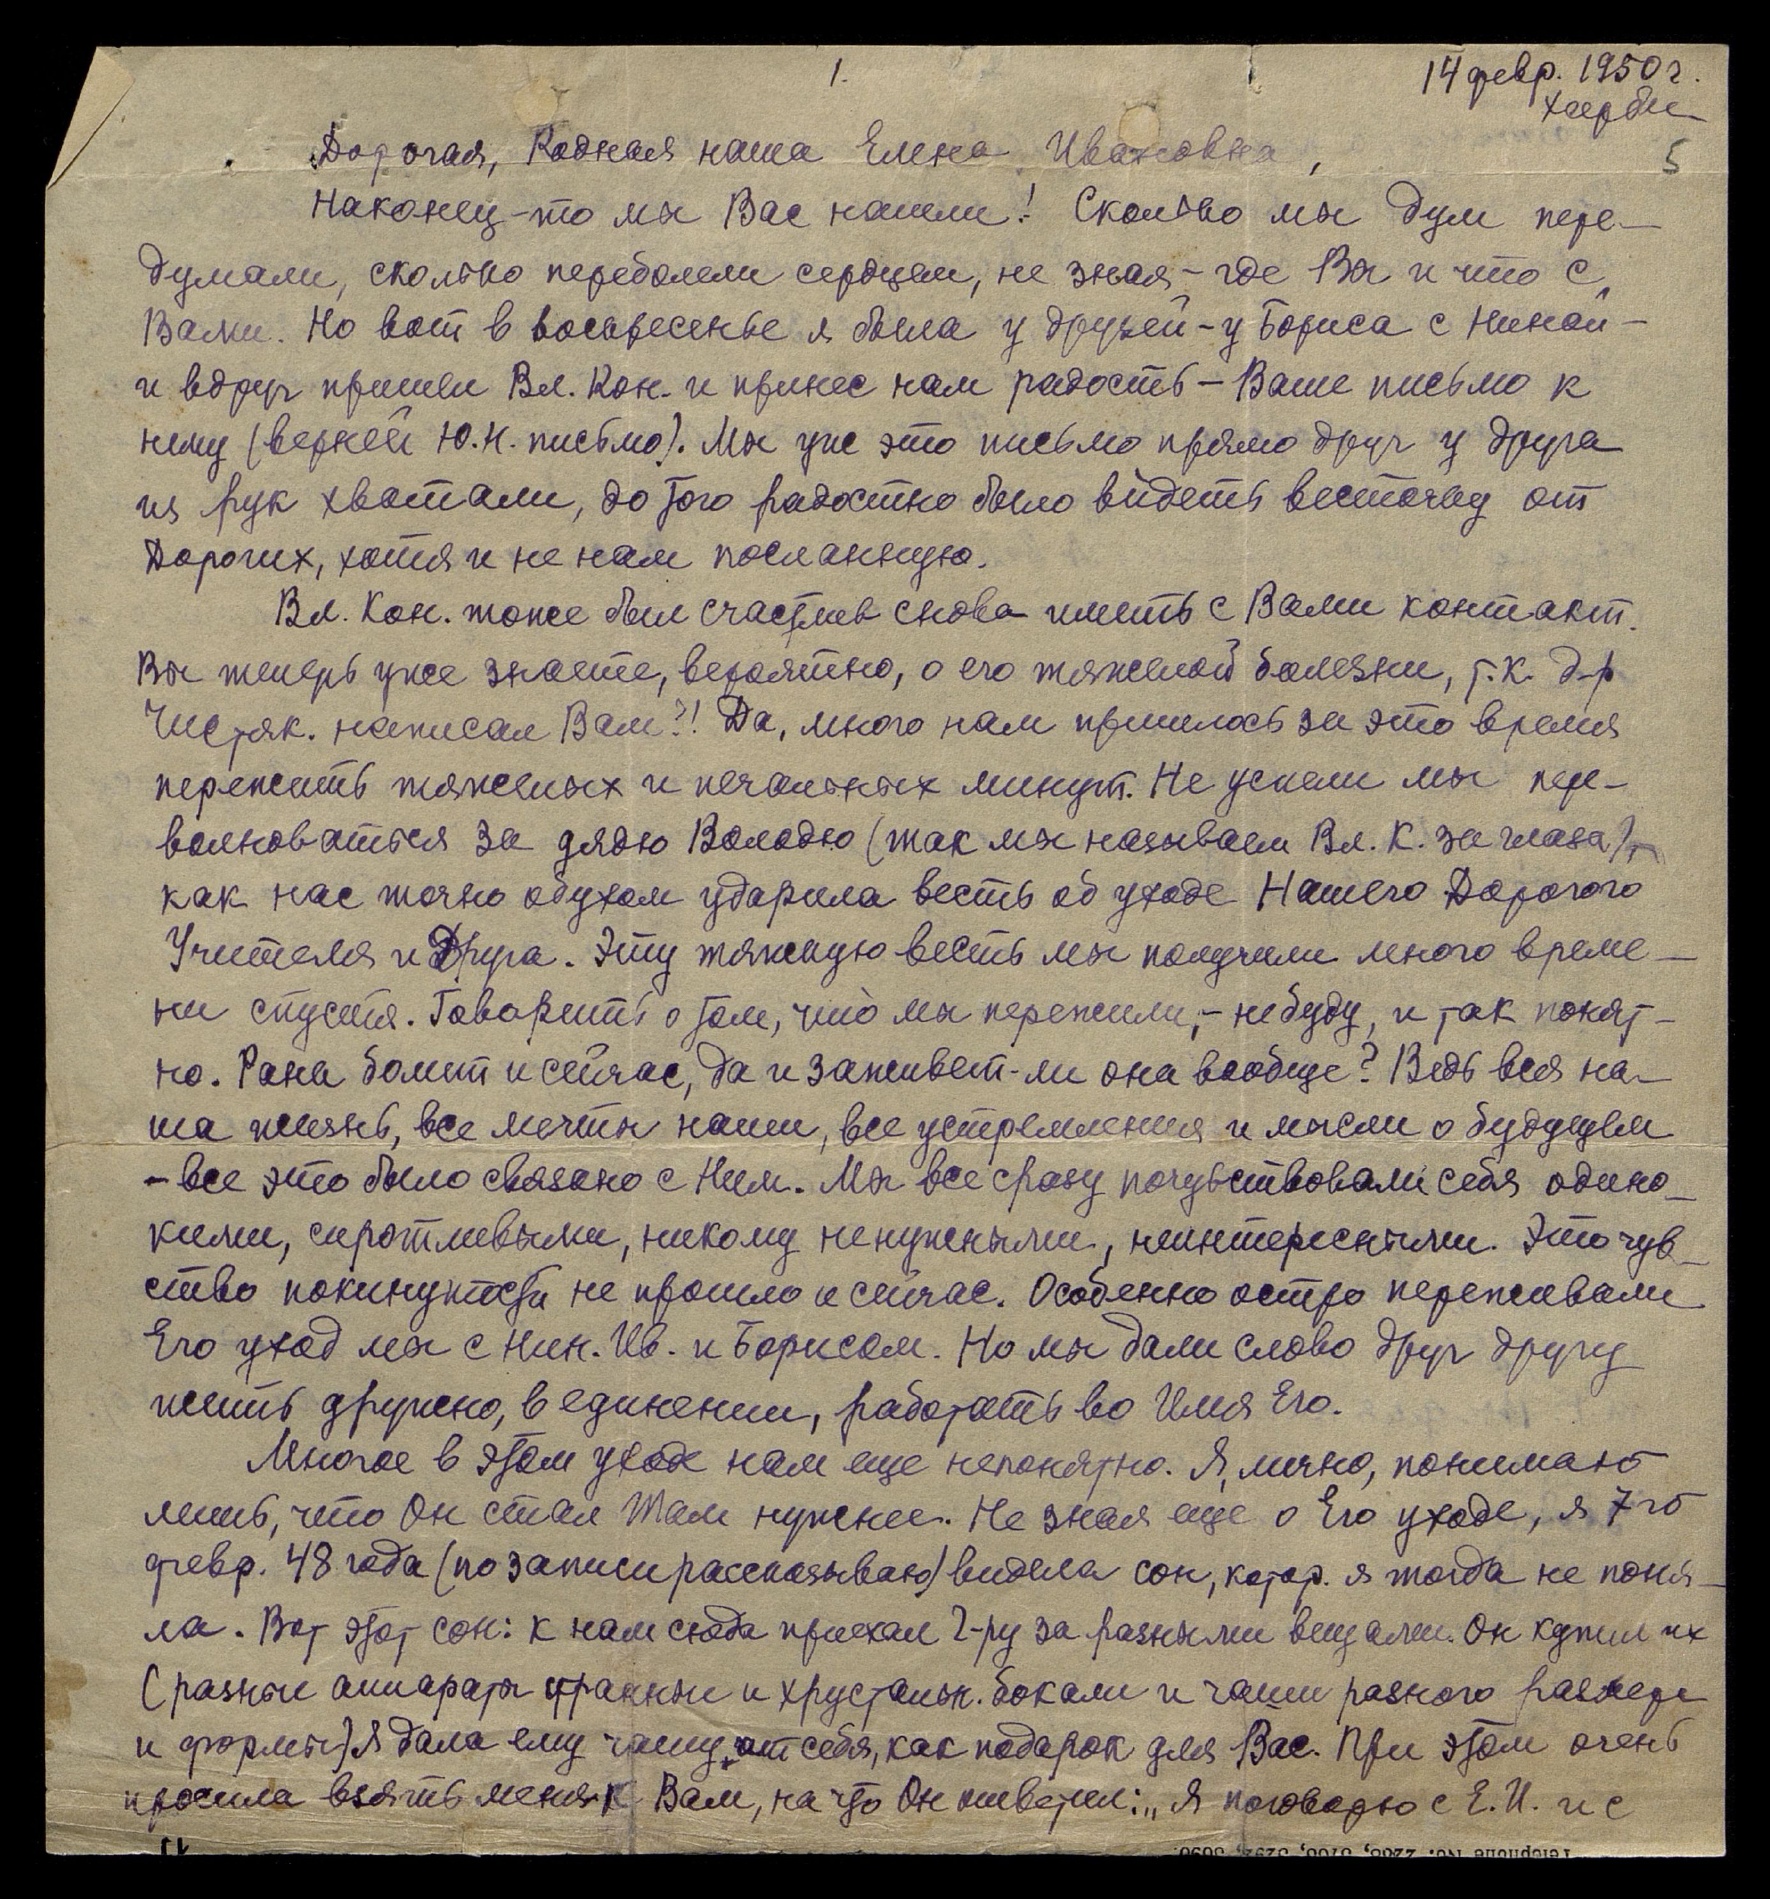 1.
14 февр. 1950 г.
Харбин
5
Дорогая, Родная наша Елена Ивановна,
Наконец-то мы Вас нашли! Сколько мы дум пере-
думали, сколько переболели сердцем, не зная – где Вы и что с
Вами. Но вот в воскресенье я была у друзей – у Бориса с Ниной –
и вдруг пришел Вл. Кон. и принес нам радость – Ваше письмо к
нему (верней Ю.Н. письмо). Мы уже это письмо прямо друг у друга
из рук хватали, до того радостно было видеть весточку от
Дорогих, хотя и не нам посланную.
Вл. Кон. тоже был счастлив снова иметь с Вами контакт.
Вы теперь уже знаете, вероятно, о его тяжелой болезни, т.к. д-р
Чистяк. написал Вам?! Да, много нам пришлось за это время
пережить тяжелых и печальных минут. Не успели мы пере-
волноваться за дядю Володю (так мы называем Вл. К. за глаза),
как нас точно обухом ударила весть об уходе Нашего Дорогого
Учителя и Друга. Эту тяжкую весть мы получили много време-
ни спустя. Говорить о том, что мы пережили, – не буду, и так понят-
но. Рана болит и сейчас, да и заживет-ли она вообще? Ведь вся на-
ша жизнь, все мечты наши, все устремления и мысли о будущем
– все это было связано с Ним. Мы все сразу почувствовали себя одино-
кими, сиротливыми, никому ненужными, неинтересными. Это чув-
ство покинутости не прошло и сейчас. Особенно остро переживали
Его уход мы с Нин. Ив. и Борисом. Но мы дали слово друг другу
жить дружно, в единении, работать во Имя Его.
Многое в этом уходе нам еще непонятно. Я, лично, понимаю
лишь, что Он стал Там нужнее. Не зная еще о Его уходе, я 7го
февр. 48 года (по записи рассказываю) видела сон, котор. я тогда не поня-
ла. Вот этот сон: к нам сюда приехал Г-ру за разными вещами. Он купил их
(разные аппараты странные и хрустальн. бокалы и чаши разного размера
и формы) Я дала ему чашу от себя, как подарок для Вас. При этом очень
просила взять меня к Вам, на что Он ответил: „Я поговорю с Е.И. и с
Telephone No.: 2268, 3768, 3292, 3690.